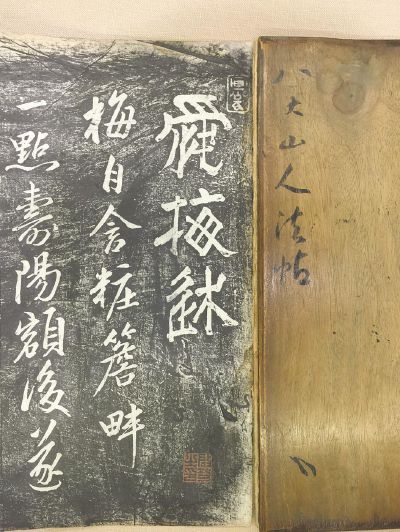 八大山人法帖
梅
梅自含粧簷畔
一點壽陽額後遂